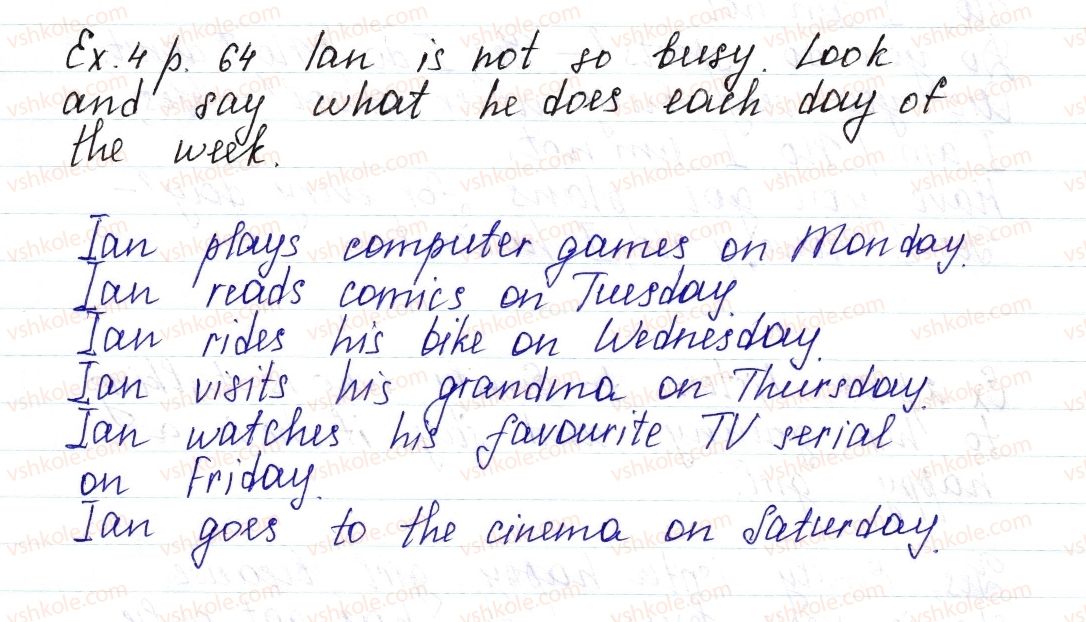 Ex. 4 p. 64 Ian is not so busy. Look
and say what he does each day of
the week.
Ian plays computer games on Monday.
Ian reads comics on Tuesday.
Ian rides his bike on Wednesday.
Ian visits his grandma on Thursday.
Ian watches his favourite TV serial
on Friday.
Ian goes to the cinema on Saturday.